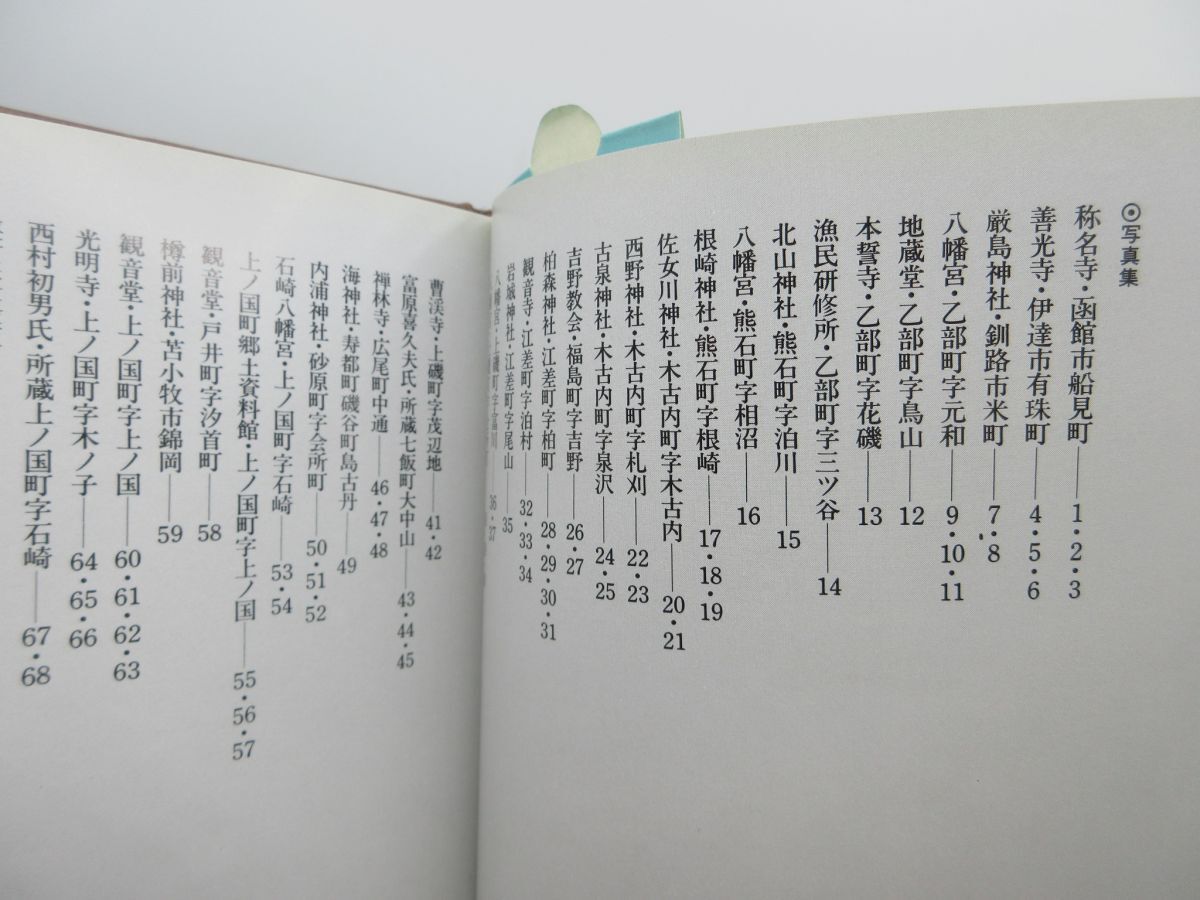 ⦿写真集
称名寺・函館市船見町――1・2・3
善光寺・伊達市有珠町――4・5・6
厳島神社・釧路市米町――7・8
八幡宮・乙部町字元和――9・10・11
地蔵堂・乙部町字鳥山――12
本誓寺・乙部町字花磯――13
漁民研修所・乙部町字三ツ谷――14
北山神社・熊石町字泊川――15
八幡宮・熊石町字相沼――16
根崎神社・熊石町字根崎――17・18・19
佐女川神社・木古内町字木古内――20・21
西野神社・木古内町字札刈――22・23
古泉神社・木古内町字泉沢――24・25
吉野教会・福島町字吉野――26・27
柏森神社・江差町字柏町――28・29・30・31
観音寺・江差町字泊村――32・33・34
岩城神社・江差町字尾山――35
八幡宮・上磯町字富川――36・37
曹渓寺・上磯町字茂辺地――41・42
富原喜久夫氏・所蔵七飯町大中山――43・44・45
禅林寺・広尾町中通――46・47・48
海神社・寿都町磯谷町島古丹――49
内浦神社・砂原町字会所町――50・51・52
石崎八幡宮・上ノ国町字石崎――53・54
上ノ国町郷土資料館・上ノ国町字上ノ国――55・56・57
観音堂・戸井町字汐首町――58
樽前神社・苫小牧市錦岡――59
観音堂・上ノ国町字上ノ国――60・61・62・63
光明寺・上ノ国町字木ノ子――64・65・66
西村初男氏・所蔵上ノ国町字石崎――67・68